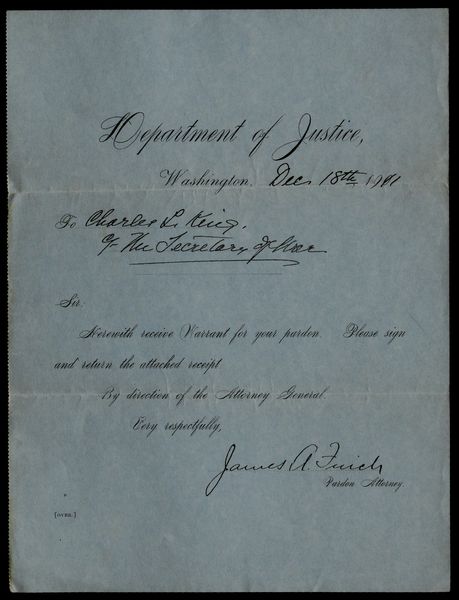 Department of Justice,
Washington, Dec 18th 1911
To Charles L. King,
c/- The Secretary of War
Sir:
Herewith receive Warrant for your pardon. Please sign
and return the attached receipt.
By direction of the Attorney General.
Very respectfully,
James A. Finch
Pardon Attorney.
[OVER.]